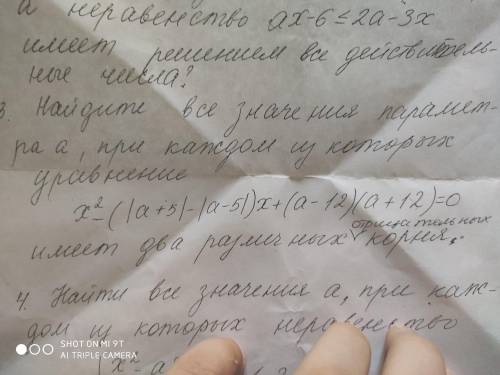 а неравенство ax-6≤2a-3x
имеет решением все действитель-
ные числа?
3. Найдите все значения парамет-
ра а, при каждом из которых
уравнение
x²-(|a+5|-|a-5|)x+(a-12)(a+12)=0
отрицательных
имеет два различных корня.
4. Найти все значения а, при каж-
дом из которых неравенство
SHOT ON MI 9T
AI TRIPLE CAMERA